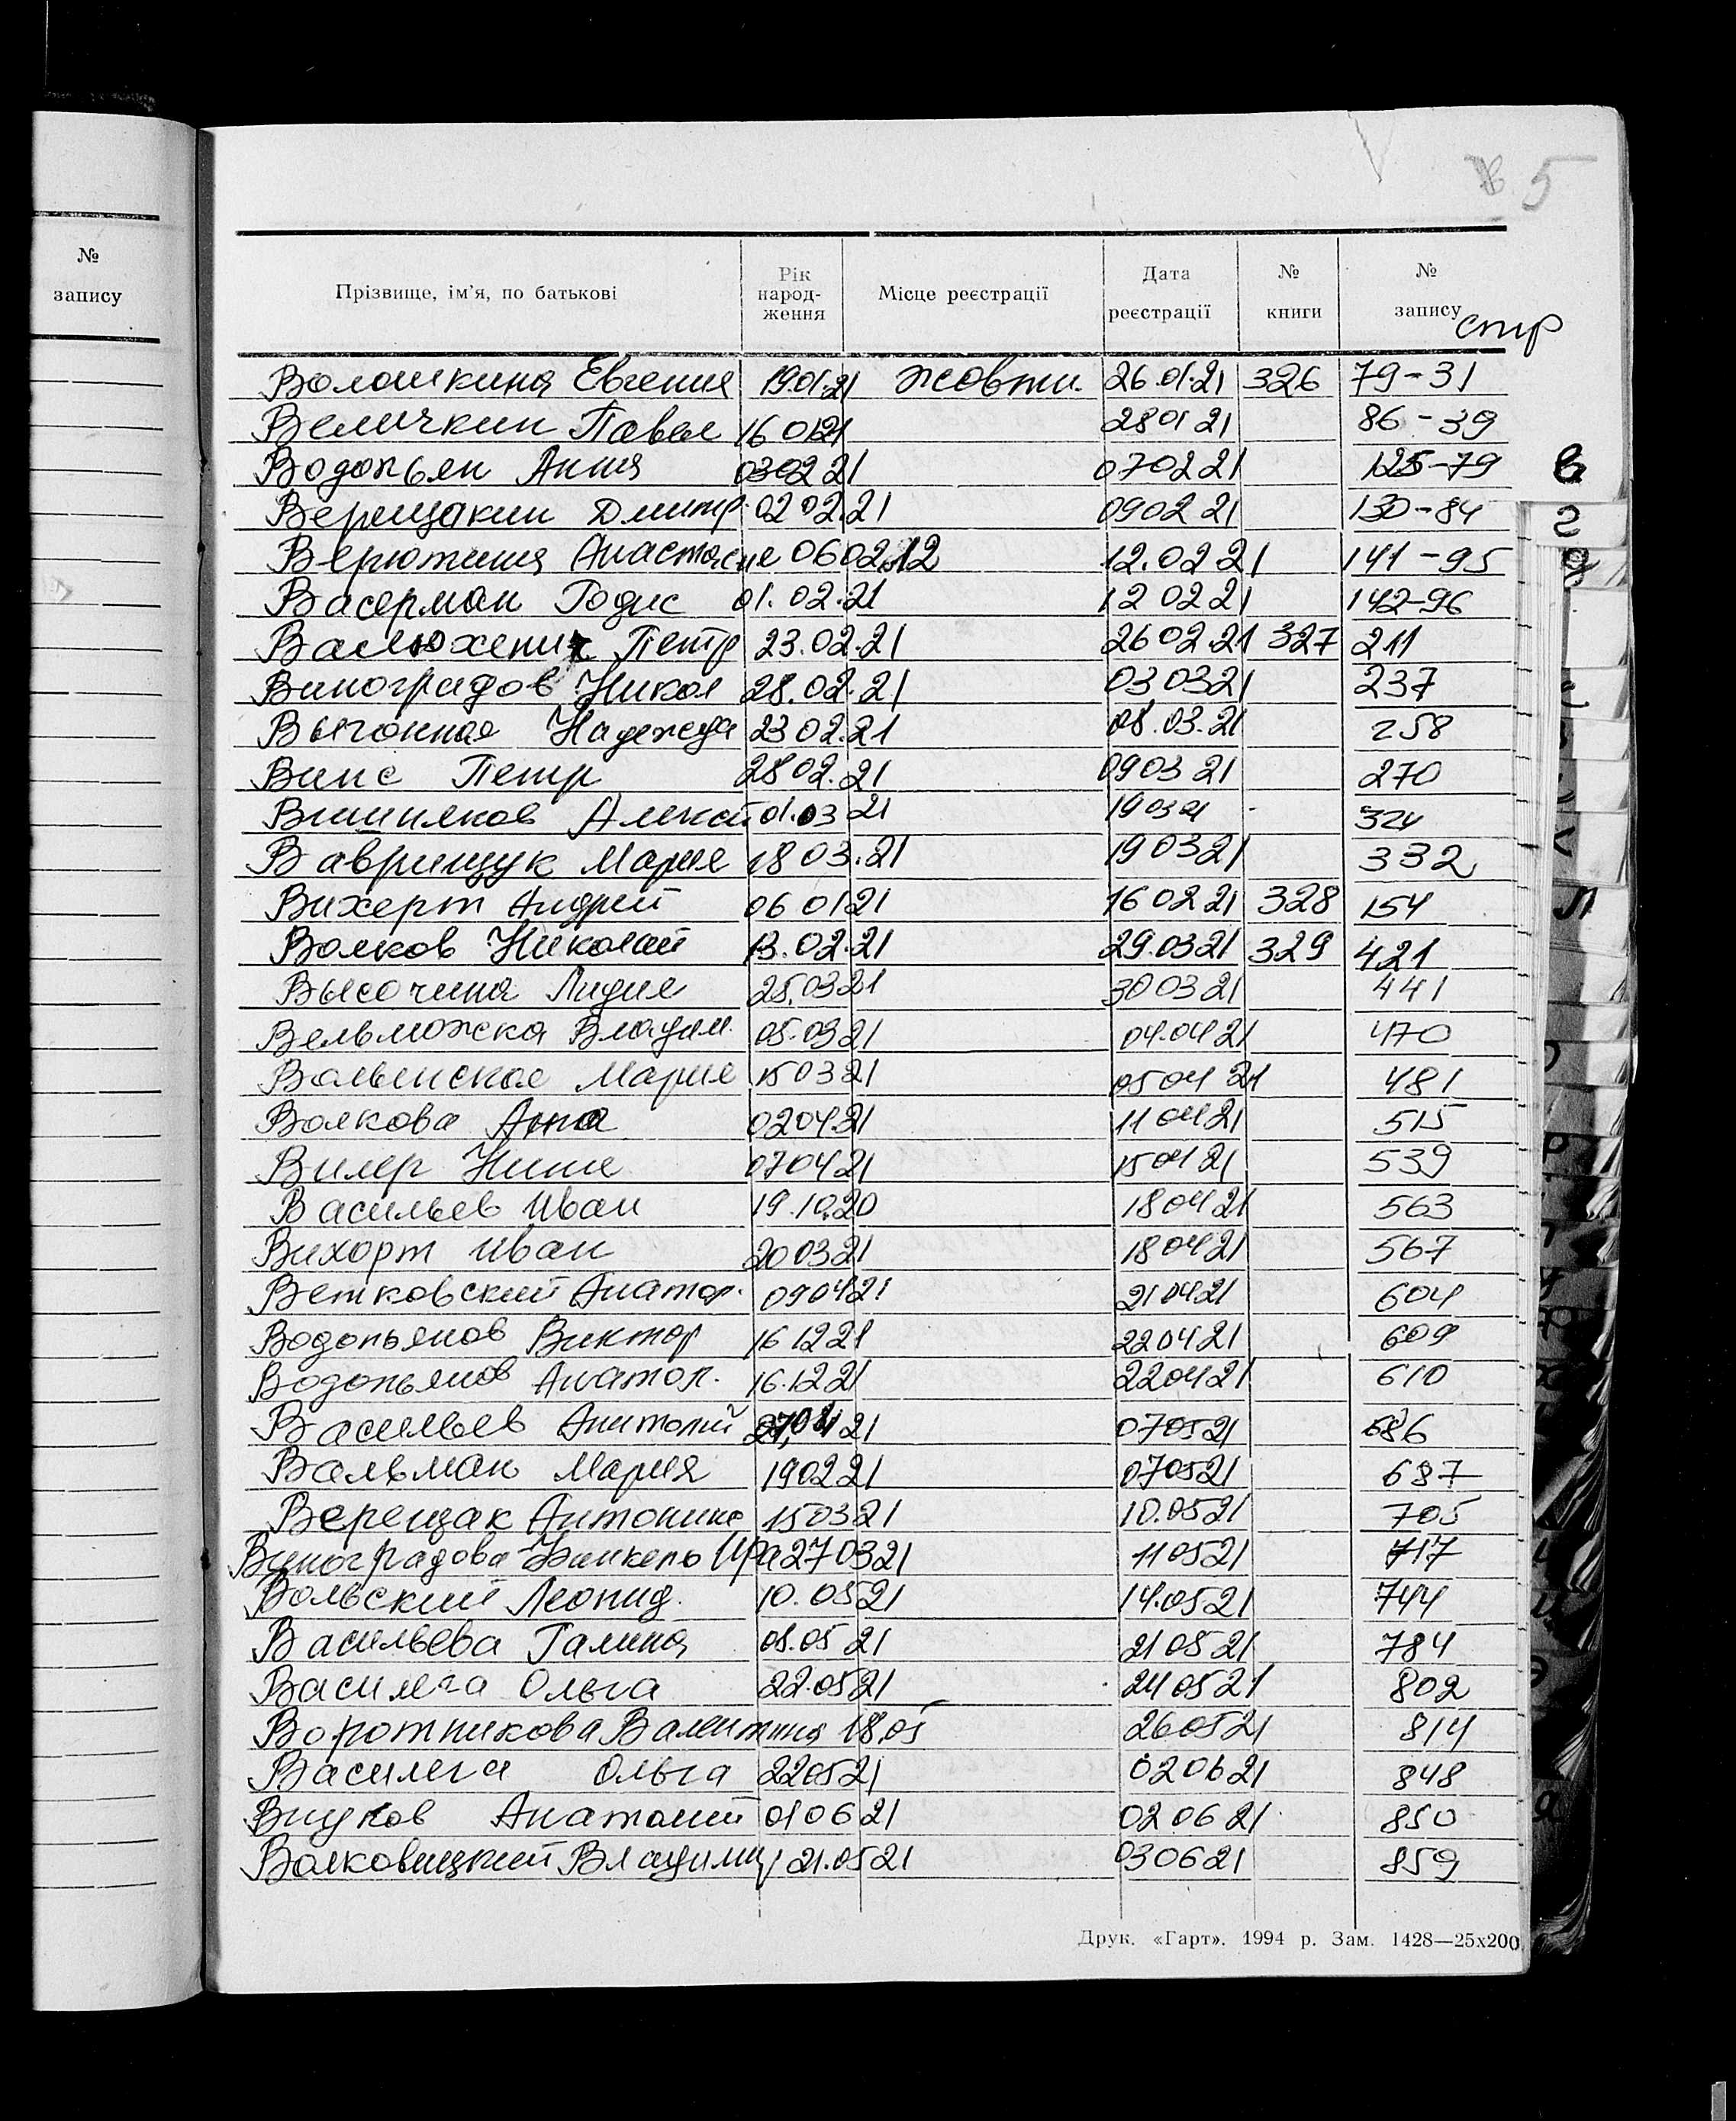 5
№
запису
Прізвище, ім'я, по батькові
Рік
народ-
ження
Місце реєстрації
Дата
реєстрації
№
книги
№
запису
стр
Волошкина Евгения 19.01.21 Жовтн. 26.01.21 326 79-31
Величкин Павел 16 01 21 28 01 21 86-39
Водопьян Анна 03 02 21 07 02 21 125-79
Верещакин Дмитр. 02 02.21 09 02 21 130-84
Верютина Анастасие 06 02.12 12.02 21 141-95
Васерман Годис 01.02.21 12 02 21 142-96
Валюхенич Петр 23.02.21 26 02.21 327 211
Виноградов Никол 28.02.21 03 03 21 237
Выгонная Надежда 23 02.21 08.03.21 258
Винс Петр 28 02.21 09 03 21 270
Вишняков Алексей 01.03 21 19 03 21 324
Ваврищук Мария 18 03.21 19 03 21 332
Вихерт Андрей 06 01 21 16 02 21 328 154
Волков Николай 13.02.21 29.03 21 329 421
Высочина Лидия 25.03 21 30 03 21 441
Вельможка Владим. 05.03 21 04.04 21 470
Волынская Мария 15 03 21 05 04 21 481
Волкова Анна 02 04.21 11 04 21 515
Вилер Нина 07 04 21 15 04 21 539
Васильев Иван 19.10.20 18 04 21 563
Вихорт Иван 20 03 21 18 04 21 567
Ветковский Анатол. 09 04 21 21 04 21 604
Водопьянов Виктор 16 12 21 22 04 21 609
Водопьянов Анатол. 16.12 21 22 04 21 610
Васильев Анатолий 21 07 05 21 686
Вальман Мария 19 02 21 07 05 21 687
Верещак Антонина 15 03 21 10.05 21 705
Виноградова-Финкель Ира 27 03 21 11 05 21 717
Вольский Леонид. 10.05 21 14.05 21 744
Васильева Галина 08.05 21 21 05 21 784
Василега Ольга 22.05 21 24 05 21 802
Воротникова Валентина 18.05 26 05 21 814
Василега Ольга 22 05 21 02 06 21 848
Внуков Анатолий 01 06 21 02 06 21 850
Волковицкий Владимир 21.05 21 03 06 21 859
Друк. «Гарт». 1994 р. Зам. 1428—25х200
В
Г
Д
Л